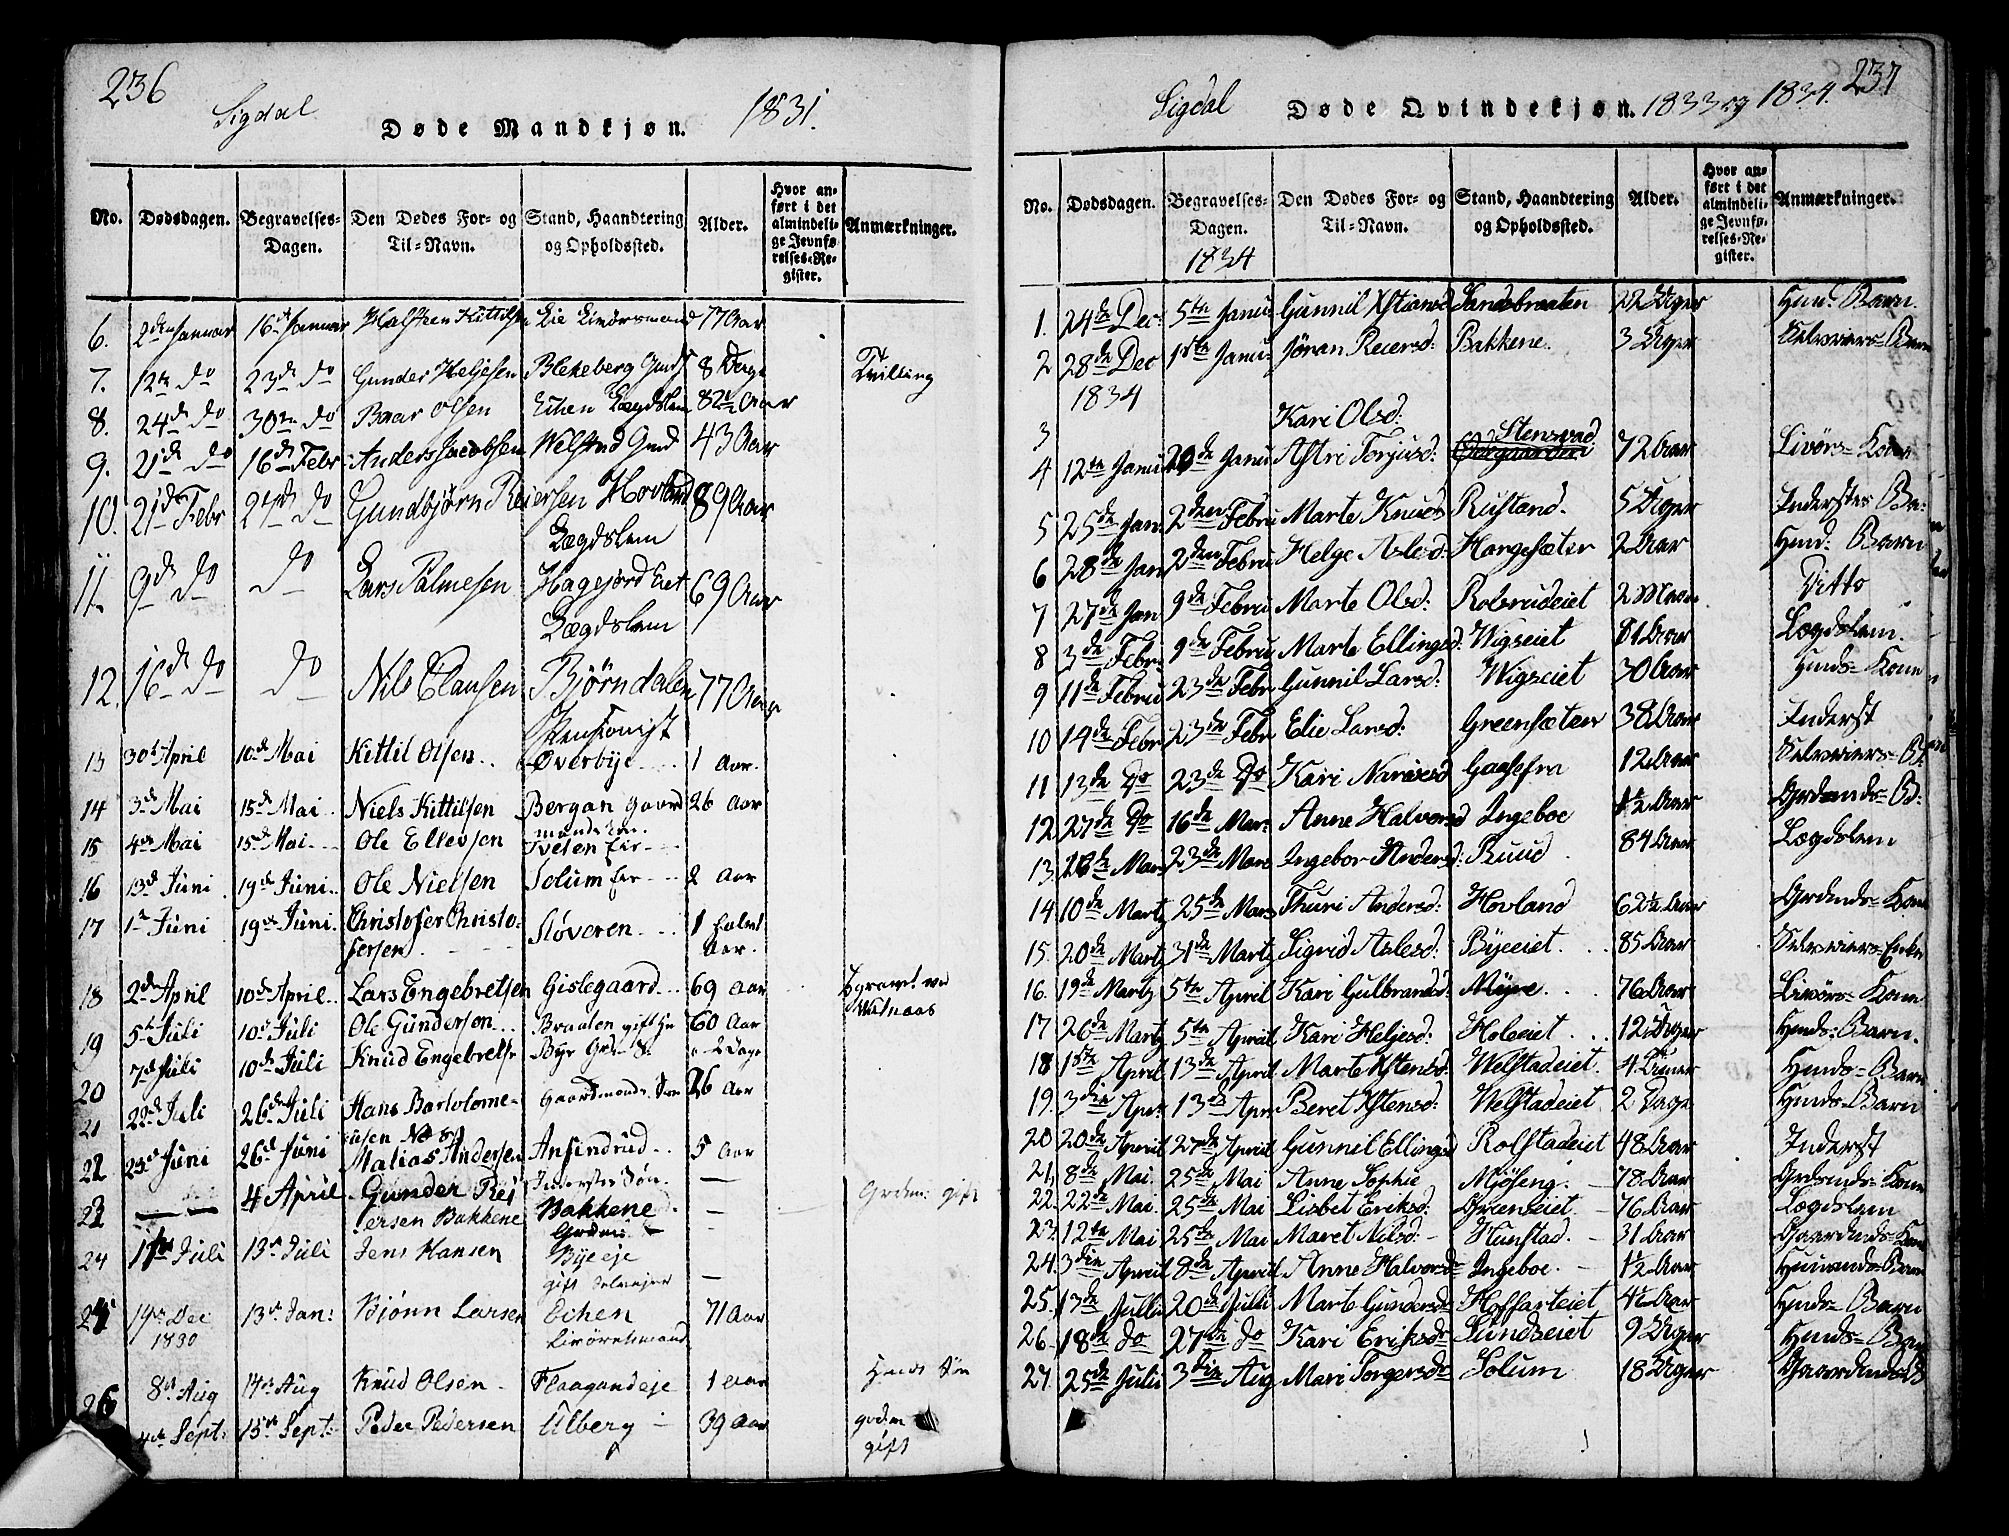 236
Sigdal
Døde Mandkjøn.
1831.
No. | Dødsdagen. | Begravelses-Dagen. | Den Dødes For- og Til-Navn. | Stand, Haandtering og Opholdssted. | Alder. | Hvor anført i det almindelige Jevnførelses-Register. | Anmærkninger.
6. 2den Januar 16de Januar Halsten Kittilsen 77 Aar
7. 12te do 23de do Gunder Helgesen Blekeberg 8 Dage Tvilling
8. 24de do 30te do Baar Olsen Echen Lægdslem 82½ Aar
9. 21de do 16de Febr Anders Jacobsen Welstad 43 Aar
10. 21de Febr 27de do Gundbjørn Reiersen Hovland 89 Aar
Lægdslem
11. 9de do do Lars Palmesen Hagejord Eiet 69 Aar
Lægdslem
12. 16de do do Nils Clausen Bjørndalen 77 Aar
Pensionist
13 30te April 10de Mai Kittil Olsen.. Øverbye 1 Aar.
14 3de Mai 15de Mai Niels Kittilsen Bergan Gaard 26 Aar
mands Søn.
15 4de Mai 15de Mai Ole Ellevsen Tveten Eie
16 13de Juni 19de Juni.. Ole Nielsen Solum Eie 2 Aar
17 1te Juni 19de Juni. Christofer Christo- Støveren 1 halvt
fersen. Aar.
18 2de April 10de April.. Lars Engebretsen Gislegaard 69 Aar Begravet ved
19 5te Juli 10de Juli Ole Gundersen... Braaten gift 60 Aar
7de Juli 10de Juli Knud Engebretsen Bye 2 Dage
20
21 22de Juli 26de Juli Hans Bartolome- Gaardmands Søn 26 Aar
usen Næs
22 23de Juni 26de Juni Matias Andersen Ansindrud 5 Aar
Inderstes Søn.
23 4 April Gunder Rei Bakkene Grdm: gift
ersen Bakkene
24 1te Juli 13de Juli Jens Hansen Byeeje
gift
24 19de Dec 13de Jan: Bjønn Larsen Echen 71 Aar
1830 Livørsmand
8de Aug 14de Aug Knud Olsen Flaagandeje 1 Aar Hmds Søn
26
4de Sept: 15de Sept: Peder Pedersen Ulberg 39 Aar grdm
gift
237
Sigdal
Døde Qvindekjøn.
1833 og 1834.
No. | Dødsdagen. | Begravelses-Dagen. | Den Dødes For- og Til-Navn. | Stand, Haandtering og Opholdssted. | Alder. | Hvor anført i det almindelige Jevnførelses-Register. | Anmærkninger.
1834
1. 24de Dec: 5te Janu: Gunnil Sandsbraaten 22 Uger Hmd: Barn
2 28de Dec Janu: Jøran Reiersd: Bakkene. 3 Uger Selveiers Barn
1834
3 Kari Olsd:
Stensrud
4 12te Janu Janu Astri Torjusd: 72 Aar Livørs Kone
5 25de Jan: 2den Febru Marte Knuds Rustand. 5 Uger Inderstes Ba:
6 28de Jan 2den Febru Helge Aslesd: Horgesæter 2 Aar Hmd: Barn
7 27de Jan 9de Febru Marte Olsd: Rolsrudeiet 2 Maan Ditto
8 3de Febr 9de Febru Marte Ellingsd: Wigseiet 81 Aar Lægdslem.
9 11de Febru 23de Febr Gunnil Larsd: Wigseiet 30 Aar Hmds Kone
10 14de Febr 23de Febr Elie Larsd: Greensæter 38 Aar Inderst
11 13de do 23de do Kari Narvesd Gaasefra 12 Aar Selveiers B:
12 27de do 16de Mar: Anne Halvorsd Ingeboe 1½ Aar Grdmds B:
13. Mar 23de Mar Ingebor Andersd: Ruud 84 Aar Lægdslem
14 10de Marty 25de Mars Thuri Andersd: Hovland 62½ Aar Grdmds Kone
15. 20de Marty 31de Marty Sigrid Aslesd: Byeeiet. 85 Aar Selveiers Enke
16. 19de Marty 5te April Kari Gulbrandsd: Myre 76 Aar Livørs Kone
17 26de Marty 5te April Kari Helgesd: Holeiet. 12 Uger Hmds Barn.
18 1ste April 13de April Marte Welstadeiet. 4 Uger Hmds Barn
19. 3die Apr: 13de Apr Beret Welstadeiet 2 Dage Hmds Barn
20 20de April 27de April Gunnil Ellingsd Rolstadeiet 48 Aar Inderst
21, 8de Mai. 25de Mai Anne Sophie Mjøseng. 78 Aar Grdmds Kone
22. 22de Mai 25de Mai Lisbet Eriksd: Grenseiet 76 Aar Lægdslem
23. 12te Mai 25de Mai Maret Nilsd: Hunstad. 31 Aar Gaardmds Kone
24. 3die April 8de April Anne Halvorsd Ingeboe. 1½ Aar Barn
25. 13de Julii 20de Julii Marte Gundersd: Hoffarteiet 4½ Aar Hmds Barn
26. 18de do 27de do Kari Eriksdr Lundseiet 9 Uger Hmds Barn
27. 25de Julii 3die Aug Mari Torgersdr Solum 18 Uger Gaardmds B